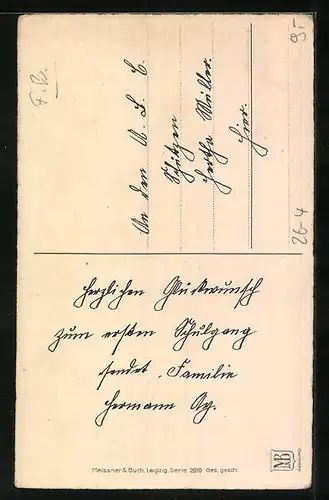 F. B.
9.-
An den A. B. C.
Schützen
Hertha Müller.
Hier.
26-4
Herzlichen Glückwunsch
zum ersten Schulgang
sendet Familie
Hermann Ay.
Meissner & Buch, Leipzig, Serie 2970 Ges. gesch.
M&B